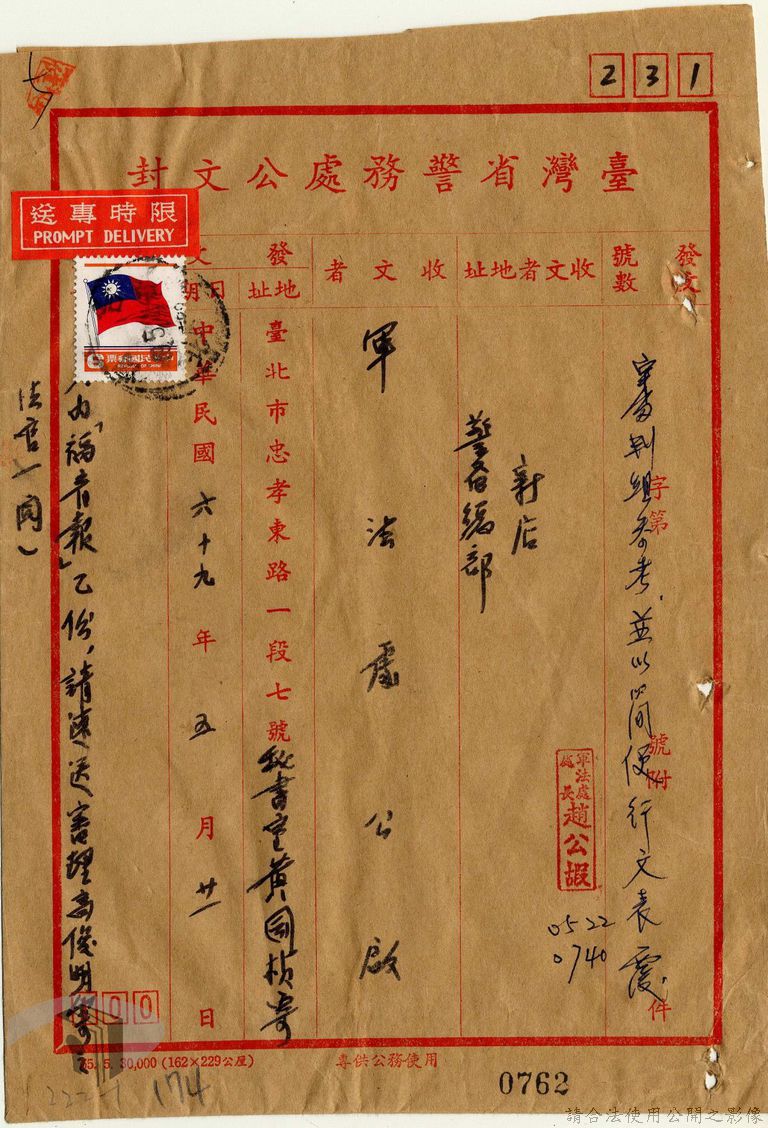 231
臺灣省警務處公文封
限時專送
PROMPT DELIVERY
中華民國郵票
REPUBLIC OF CHINA
發文
字第
號附
件
號數
審判組參考，並以簡便行文表覆
收文者地址
新店
警備總部
軍法處
處長
趙公嘏
0522
0740
收文者
軍法處公啟
發文
地址
臺北市忠孝東路一段七號
秘書室黃國楨寄
日期
中華民國六十九年五月廿一日
內「福音報」乙份，請速送審理高俊明
法官一閱）
00
75.5.30,000 (162×229公厘)
專供公務使用
0762
174
請合法使用公開之影像